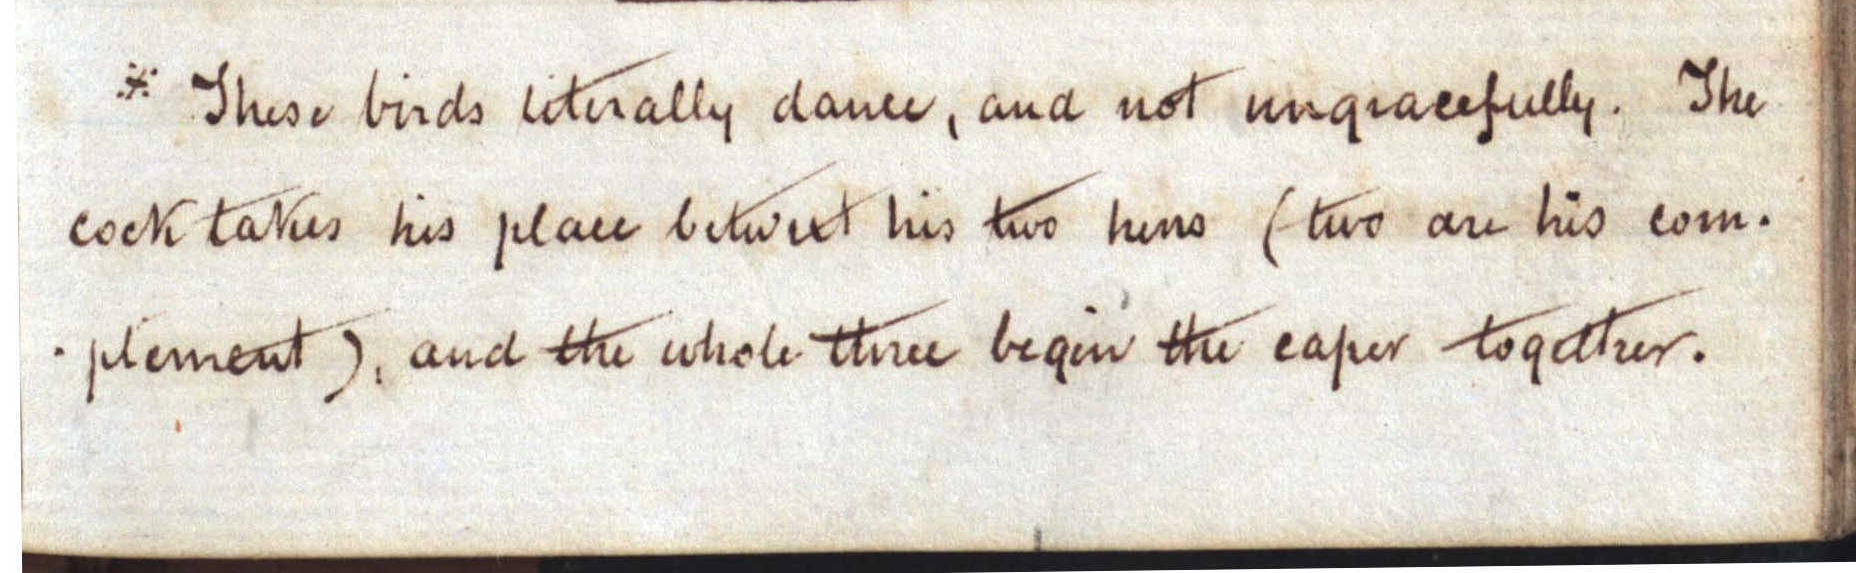 ※ These birds literally dance, and not ungracefully. The
cock takes his place betwixt his two hens (two are his com-
-plement), and the whole three begin the caper together.